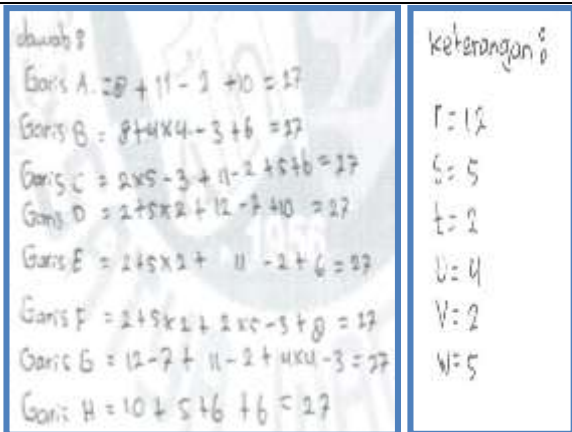 Jawab :
Garis A = 8 + 11 - 2 + 10 = 27
Garis B = 8 + 4 x 4 - 3 + 6 = 27
Garis C = 2 x 5 - 3 + 11 - 2 + 5 + 6 = 27
Garis D = 2 + 5 x 2 + 12 - 7 + 10 = 27
Garis E = 2 + 5 x 2 + 11 - 2 + 6 = 27
Garis F = 2 + 5 x 2 + 2 x 5 - 3 + 8 = 27
Garis G = 12 - 7 + 11 - 2 + 4 x 4 - 3 = 27
Garis H = 10 + 5 + 6 + 6 = 27
Keterangan :
r = 12
s = 5
t = 2
u = 4
v = 2
w = 5